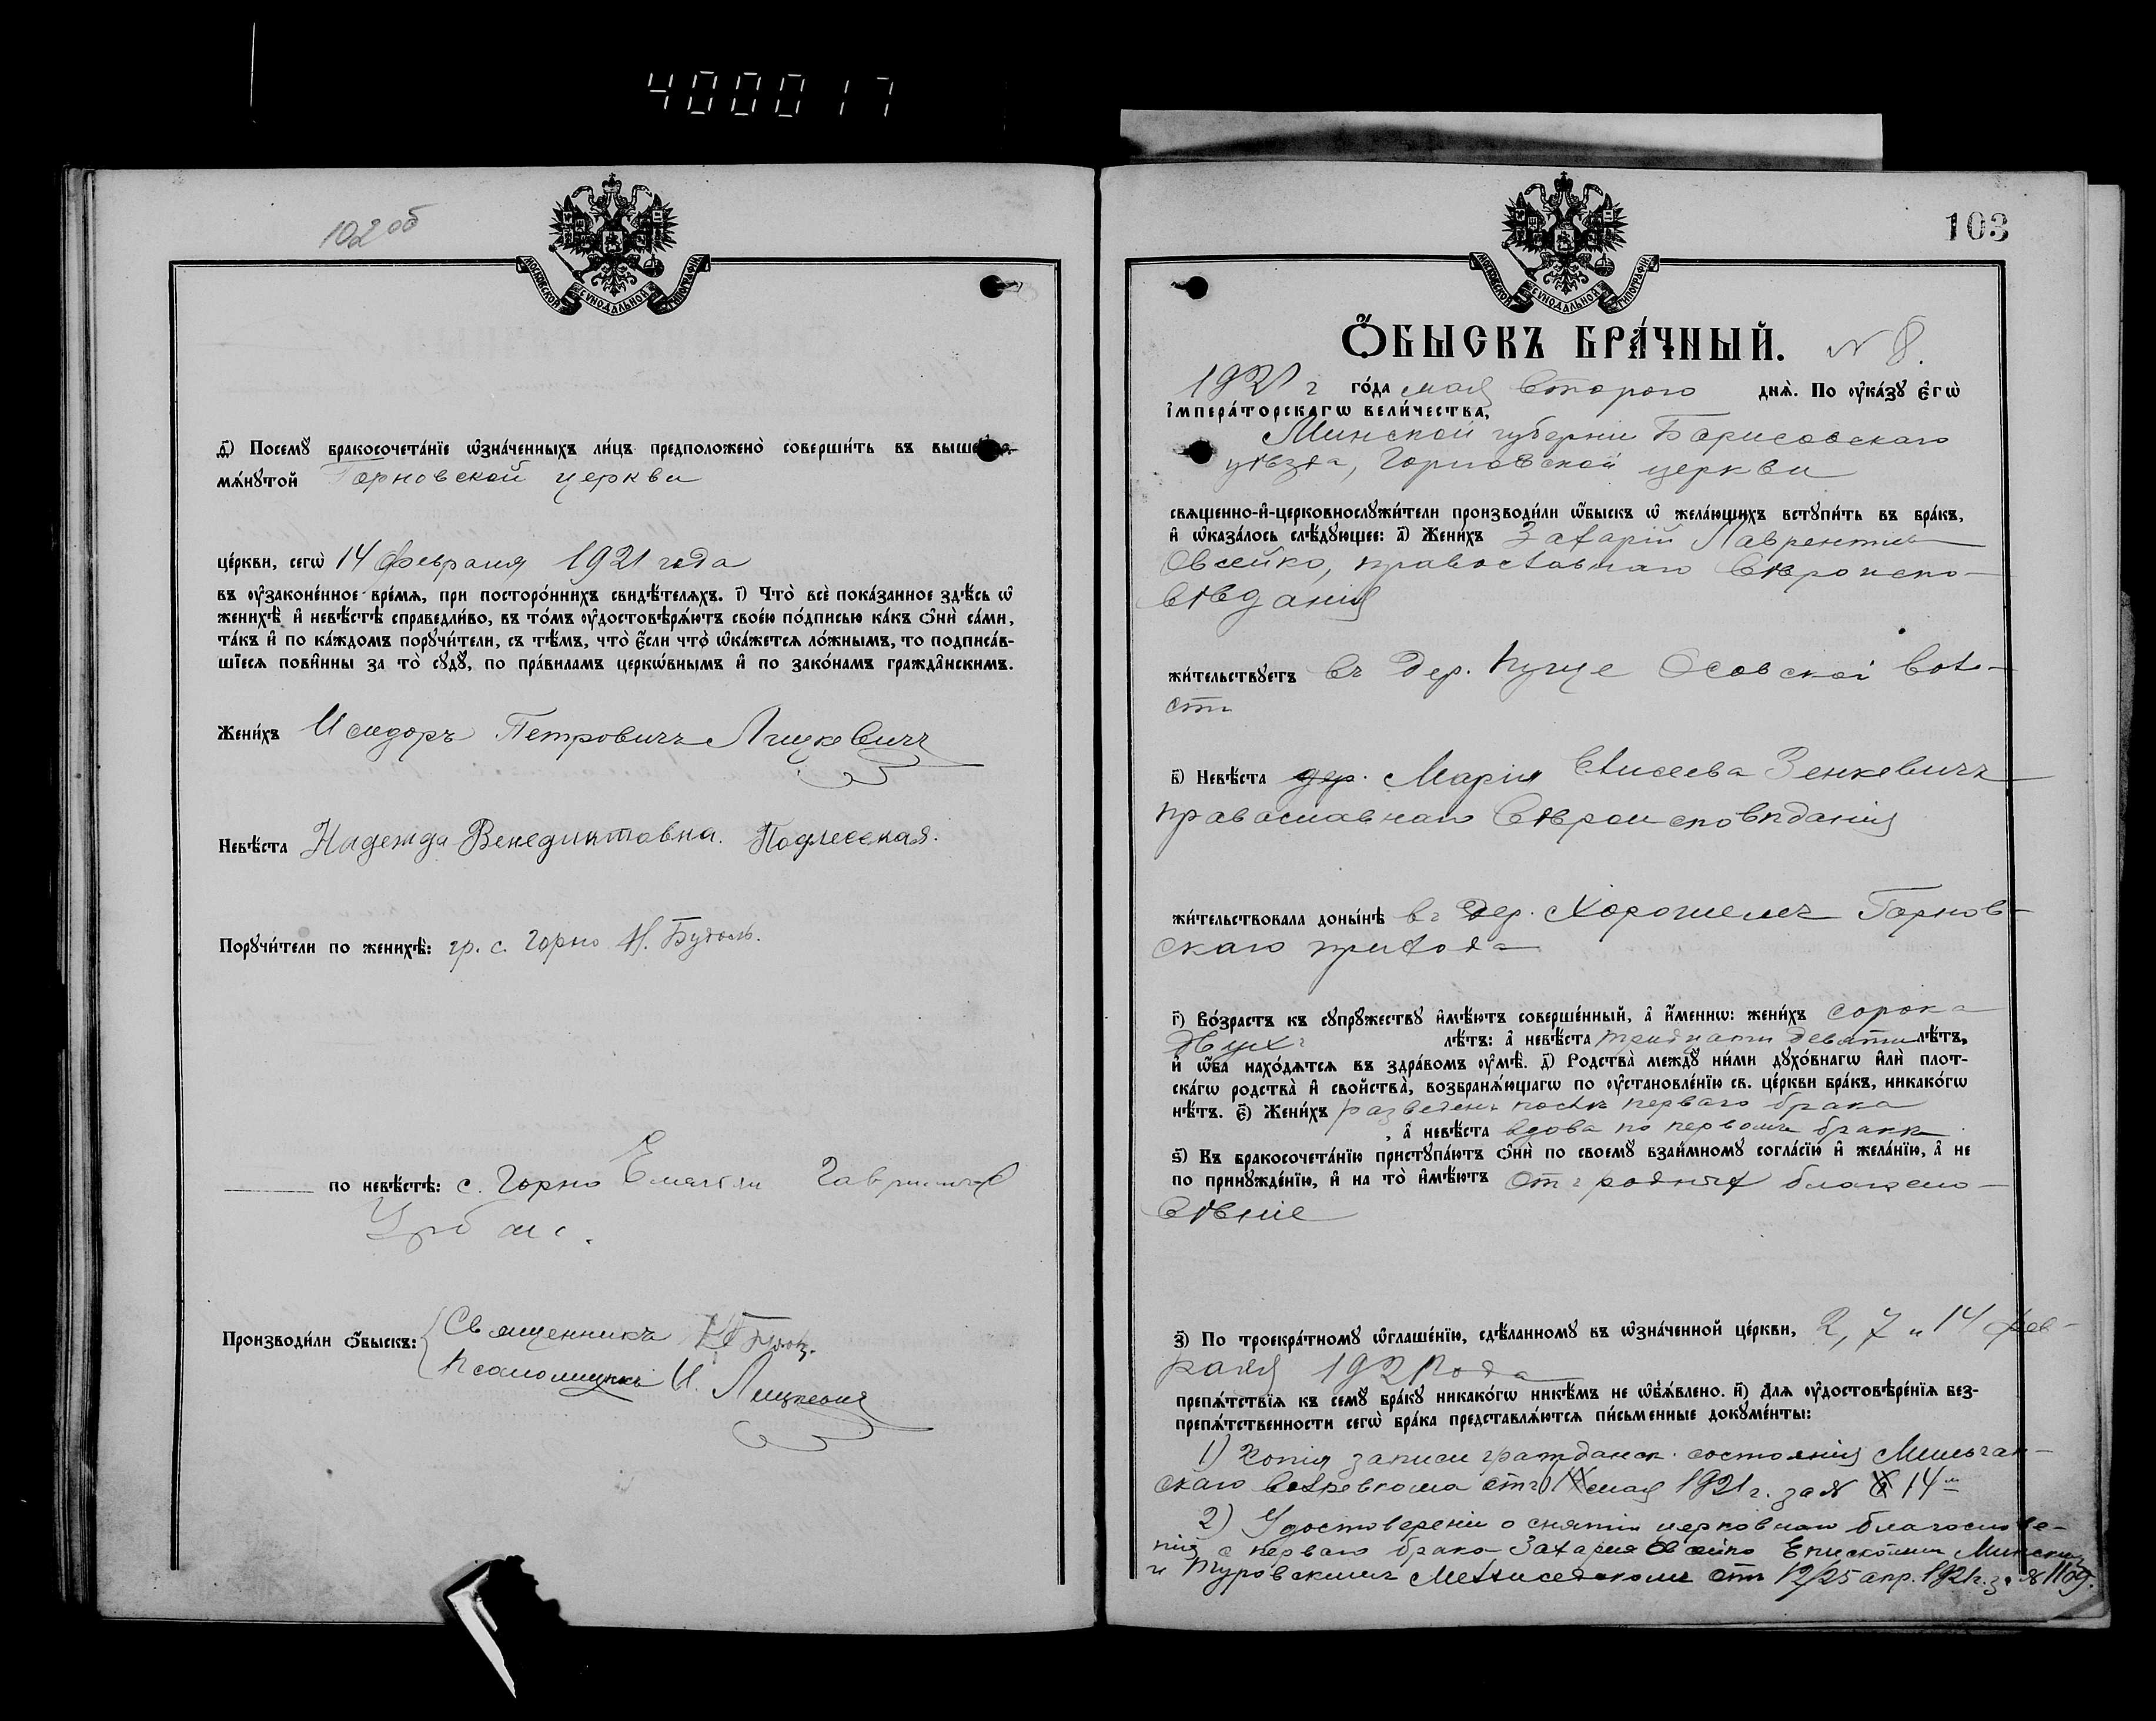 4000017
102 об
МОСКОВСКОЙ СѴНОДАЛЬНОЙ ТИПОГРАФІИ
д҃) Посемꙋ бракосочета́нїе ѡ҆зна́ченныхъ ли́цъ предположено̀ соверши́ть въ выше
мѧ́нꙋтой Горновской церкви
це́ркви, сегѡ̀ 14 февраля 1921 года
въ ᲂу҆законе́нное вре́мѧ, при посторо́ннихъ свидѣ́телѧхъ. і҃) Что̀ всѐ пока́занное здѣ́сь ѡ҆
женихѣ̀ и҆ невѣ́стѣ справедли́во, въ то́мъ ᲂу҆достовѣрѧ́ютъ свое́ю по́дписью ка́къ ѻ҆нѝ са́ми,
та́къ и҆ по ка́ждомъ порꙋчи́тели, съ тѣ́мъ, что̀ є҆́сли что̀ ѡ҆ка́жется ло́жнымъ, то подписа́в-
шїеся пови́нны за то̀ сꙋдꙋ̀, по пра́виламъ церкѡ́внымъ и҆ по зако́намъ гражда́нскимъ.
Жени́хъ Исидоръ Петровичъ Лицкевичъ
Невѣ́ста Надежда Венедиктовна. Подлесская.
Порꙋчи́тели по женихѣ̀: гр. с. Горно
по невѣ́стѣ: с. Горно
Производи́ли ѻ҆́быскъ: Священникъ
Псаломщикъ И. Лицкевичъ
103
МОСКОВСКОЙ СѴНОДАЛЬНОЙ ТИПОГРАФІИ
Ѻ҆́БЫСКЪ БРА́ЧНЫЙ. № 8.
1921 г го́да мая Второго днѧ̀. По ᲂу҆ка́зꙋ є҆гѡ̀
і҆мпера́торскагѡ вели́чества,
Минской губерніи Борисовскаго
уѣзда, Горновской церкви
свѧщенно-и҆-церковнослꙋжи́тели производи́ли ѡ҆́быскъ ѡ҆ жела́ющихъ встꙋпи́ть въ бра́къ,
и҆ ѡ҆каза́лось слѣ́дꙋющее: а҃) Жени́хъ Захарій Лаврентіевъ
Овсейко, православнаго вѣроиспо-
вѣданія
жи́тельствꙋетъ въ дер. Пуще Осовской воло-
сти
в҃) Невѣ́ста дер. Марія Елисеева Зенкевичъ
православнаго вѣроисповѣданія
жи́тельствовала доны́нѣ въ дер. Горнов-
скаго прихода
г҃) Во́зрастъ къ сꙋпрꙋ́жествꙋ и҆мѣ́ютъ соверше́нный, а҆ и҆́меннѡ: жени́хъ сорока
двухъ лѣ́тъ: а҆ невѣ́ста тридцати девяти лѣ́тъ,
и҆ ѡ҆́ба нахо́дѧтся въ здра́вомъ ᲂу҆мѣ̀. д҃) Родства̀ междꙋ̀ ни́ми дꙋхо́внагѡ и҆лѝ плот-
ска́гѡ родства̀ и҆ сво́йства̀, возбранѧ́ющагѡ по ᲂу҆становле́нїю св. це́ркви бра́къ, никако́гѡ
нѣ́тъ. є҃) Жени́хъ разведенъ послѣ перваго брака
, а҆ невѣ́ста вдова по первомъ бракѣ
ѕ҃) Къ бракосочета́нїю пристꙋпа́ютъ ѻ҆нѝ по своемꙋ̀ взаи́мномꙋ согла́сїю и҆ жела́нїю, а҆ не
по принꙋжде́нїю, и҆ на то̀ и҆мѣ́ютъ отъ родныхъ благосло-
вѣніе
з҃) По троекра́тномꙋ ѡ҆глаше́нїю, сдѣ́ланномꙋ въ ѡ҆зна́ченной це́ркви, 2, 7 и 14 фев-
раля 1921 года
препѧ́тствїя къ семꙋ̀ бра́кꙋ никако́гѡ никѣ́мъ не ѡ҆б̾ѧ́влено. и҃) Для ᲂу҆достовѣре́нїя без-
препѧ́тственности сегѡ̀ бра́ка представлѧ́ются пи́сьменные докꙋме́нты:
1) Копія записи гражданск. состоянія
скаго волревкома отъ мая 1921 г. за № 14
2) Удостовереніи о снятіи церковнаго благослове-
нія с перваго брака Захарія Овсейко Епископомъ Минскимъ
и Туровскимъ Мелхиседекомъ от 12/25 апр. 1921 г. за № 1109.